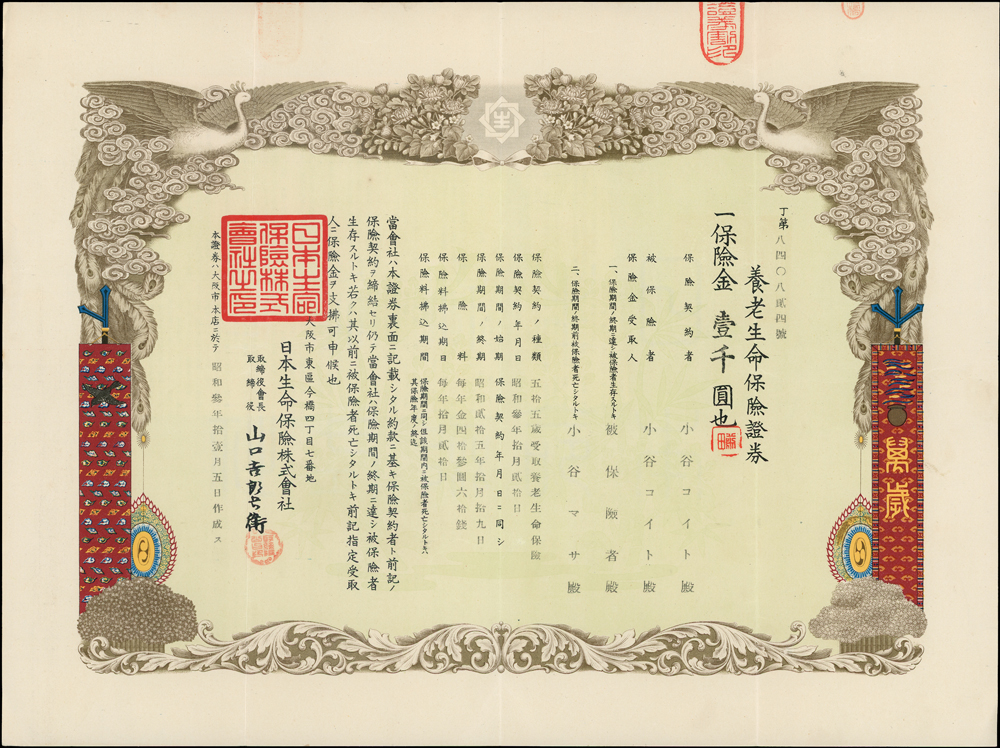 丁第八四〇八貳四號
養老生命保險證券
一保險金 壹千圓也
保險契約者 小谷コイト殿
被保險者 小谷コイト殿
保險金受取人
一、保險期間ノ終期ニ達シ被保險者生存スルトキ 被保險者殿
二、保險期間ノ終期前被保險者死亡シタルトキ 小谷マサ殿
保險契約ノ種類 五拾五歲受取養老生命保險
保險契約年月日 昭和參年拾月貳拾日
保險期間ノ始期 保險契約年月日ニ同シ
保險期間ノ終期 昭和貳拾五年拾月拾九日
保險料 每年金四拾參圓六拾錢
保險料拂込期日 每年拾月貳拾日
保險料拂込期間 保險期間ニ同シ但該期間內ニ被保險者死亡シタルトキハ
其保險年度ノ終迄
當會社ハ本證券裏面ニ記載シタル約款ニ基キ保險契約者ト前記ノ
保險契約ヲ締結セリ仍テ當會社ハ保險期間ノ終期ニ達シ被保險者
生存スルトキ若クハ其以前ニ被保險者死亡シタルトキ前記指定受取
人ニ保險金ヲ支拂可申候也
大阪市東區今橋四丁目七番地
日本生命保險株式會社
取締役會長
取締役
山口吉郎兵衛
本證券ハ大阪市本店ニ於テ 昭和參年拾壹月五日作成ス
日本生命
保險株式
會社之印
萬歲
生